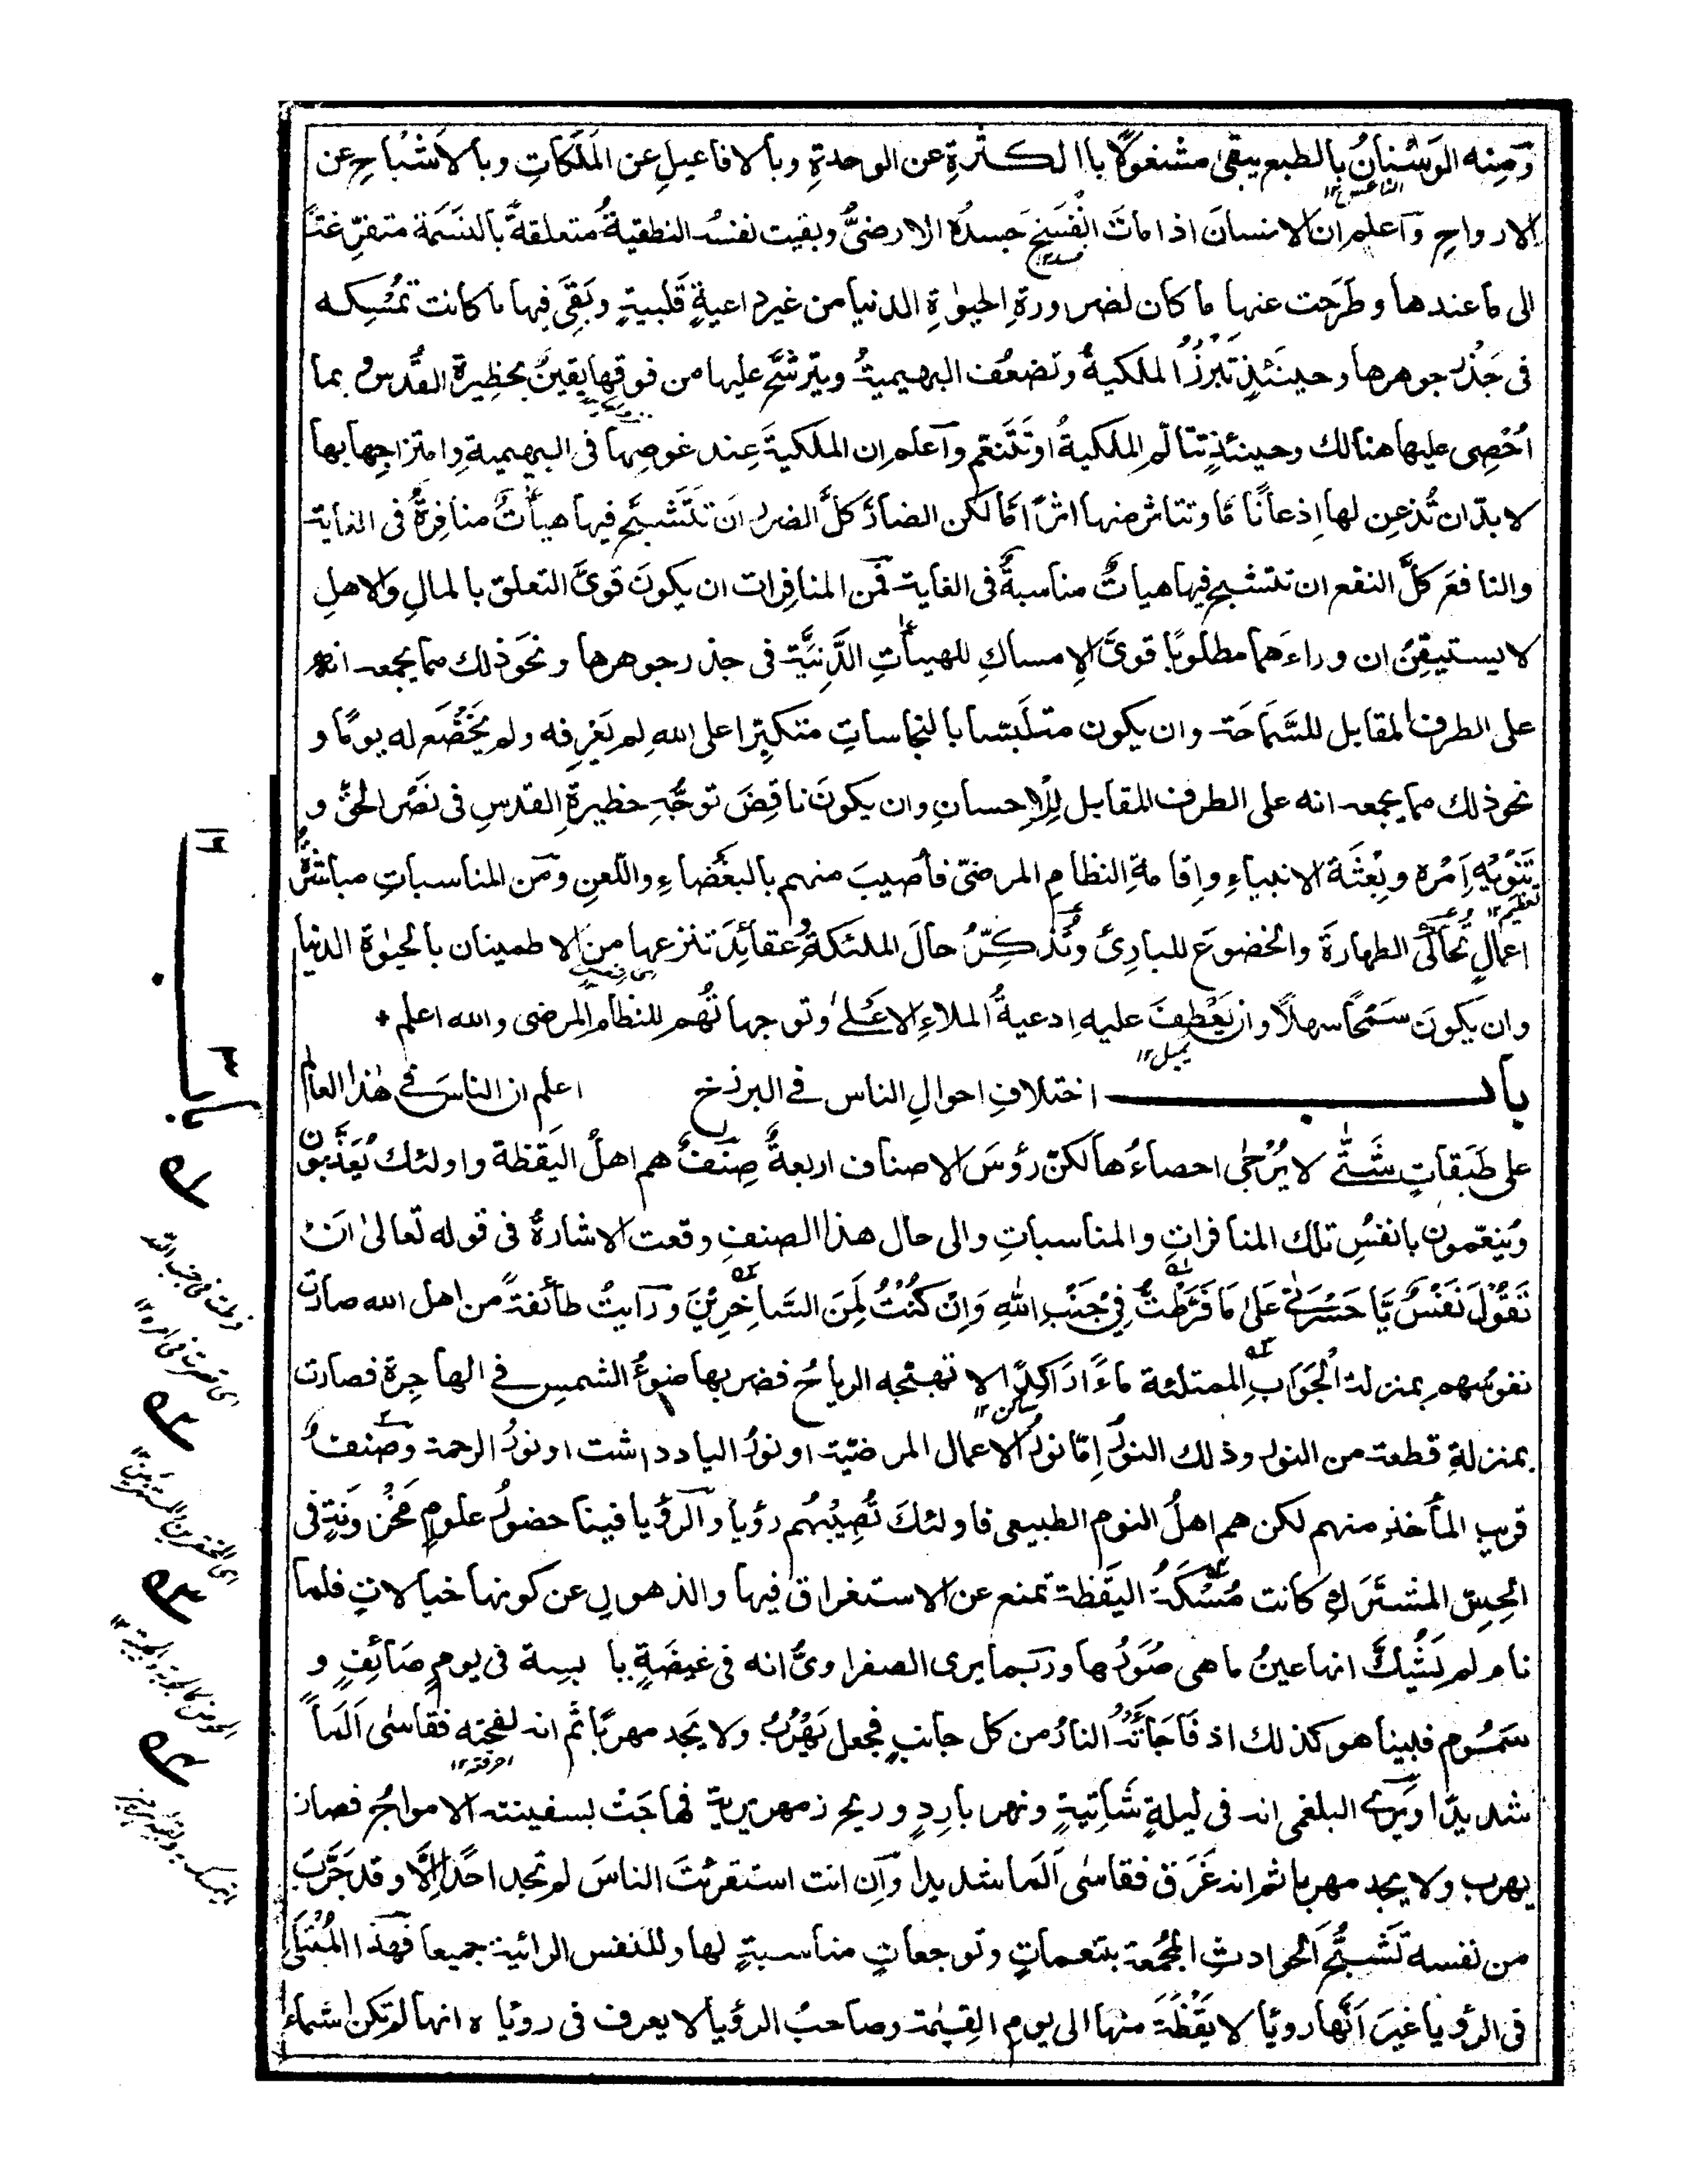 ومنه الوَسْنانُ بالطبع يبقى مشغولًا باالكثرةِ عن الوحدةِ وبالافاعيلِ عن المَلَكاتِ وبالاَشْباحِ عن
الناعس ١٢
الارواحِ وآعلم ان الانسانَ اذا ماتَ انْفَسَخ جَسدُه الارضىُّ وبقيت نفسُه النطقيةُ متعلقةً بالنَسَمَة متفرِّغةً
الى ما عندها وطرَحَت عنها ما كان لضرورةِ الحيوٰةِ الدنيا من غير داعيةٍ قَلبيةٍ وبَقِىَ فيها ما كانت تمُسِكه
فى جَذْر جوهرها وحينئذٍ تَبْرُزُ الملكيةُ وتَضعُف البهيميةُ ويترشَّح عليها من فوقها يقينٌ بحظيرة القُدس و بما
اُحْصِى عليها هنالك وحينئذٍ تتالّم الملكيةُ او تَتَنعّم وآعلم ان الملكيةَ عِند غوصِها فى البهيميةِ وامتزاجِها بها
لا بدّ ان تُذعِن لها اِذعانًا مّا وتتاثر منها اثرًا مّا لكن الضارَّ كلَّ الضرر ان تَتَشبَّح فيها هيأتٌ منافِرةٌ فى الغاية
والنافعَ كلَّ النفع ان تتشبح فيها هياتٌ مناسبةٌ فى الغاية فمن المنافِرات ان يكونَ قوىَّ التعلق بالمالِ والاهلِ
لا يستيقِنُ ان وراءَهما مطلوبًا قوىَّ الاِمساكِ للهيأتِ الدَّنِيَّة فى جذر جوهرها ونحوَ ذلك مما يجمعه انه
على الطرف المقابل للسَّماحَة وان يكون متلَبّسا بالنجاساتِ متكبّرا على اللهِ لم يَعْرِفه ولم يَخْضَع له يومًا و
نحو ذلك مما يجمعه انه على الطرف المقابل لِلْاِحسانِ وان يكونَ ناقَضَ توجُّهَ حظيرةِ القدسِ فى نَصْرِ الحقّ و
تَنْوِيْهِ اَمْرِه وبِعْثَة الانبياءِ واِقامةِ النظامِ المرضىّ فاُصيبَ منهم بالبَغْضاءِ واللّعنِ ومن المناسباتِ مباشرةُ
تعظيم ١٢
اعمالٍ تُحاكى الطهارةَ والخضوعَ للبارِئ وتُذكِّرُ حالَ الملئكةِ وعقائدَ تنزعها من الاطمينان بالحيوٰة الدنيا
وان يكونَ سَمْحًا سهلًا وان يَعْطِفَ عليه ادعيةُ الملاءِ الاَعلىٰ وتوجهاتُهُم للنظام المرضى والله اعلم +
يميل ١٢
بابـــ اختلافِ احوالِ الناس فى البرزخ اعلم ان الناسَ فى هٰذا العالم
على طَبَقاتٍ شَتّٰى لا يُرْجٰى احصاءُها لكنّ رؤسَ الاصناف اربعةٌ صِنفٌ هم اهلُ اليَقظة واولئك يُعَذَّبون
ويُنعّمون بانفُسِ تلك المنافراتِ والمناسباتِ والى حال هذا الصنفِ وقعت الاشارةُ فى قوله تعالىٰ اَنْ
تَقُوْلَ نَفْسٌ يَّا حَسْرَتٰى عَلٰى مَا فَرَّطْتُّ فِىْ جَنْبِ اللهِ وَاِنْ كُنْتُ لَمِنَ السَّاخِرِيْنَ ورَايتُ طائفةً من اهل الله صارت
نفوسُهم بمنزلة الْجَوَابِ الممتلئة ماءً ارَاكِدًا لا تهيّجه الرياحُ فضربها ضوءُ الشمسِ فى الهاجِرة فصارت
ساكن ١٢
بمنزلةِ قطعة من النور وذلك النورُ اِمّا نورُ الاعمال المرضيّة او نورُ الياد داشت او نورُ الرحمة وصنفٌ
قريب المأخذِ منهم لكن هم اهلُ النوم الطبيعى فاولئكَ تُصِيْبُهُم رؤيا والرؤيا فينا حضورُ علومٍ مَخْزونَةٍ فى
الحِسّ المشتَرَكِ كانت مُسْكَةُ اليَقَظة تمنع عن الاستغراق فيها والذهولِ عن كونها خيالاتٍ فلما
نام لم يَشُكَّ انها عينُ ما هى صُوَرُها وربما يرى الصفراوىُّ انه فى غيضَةٍ يابسة فى يومٍ صَائفٍ و
سَمُوم فبينا هو كذلك اذ فَاجَاَتْهُ النارُ من كل جانبٍ فجعل يَهْرُبُ ولا يَجد مهربًا ثم انه لفحته فقاسٰى اَلَماً
احرقته ١٢
شديدًا ويَرٰى البلغمى انه فى ليلةٍ شَاتِيةٍ ونهر بارِدٍ وريحٍ زمهريريةٍ فهاجَتْ بسفينته الامواجُ فصار
يهرب ولا يجد مهربا ثم انه غَرَق فقاسٰى اَلَما شديدا وآن انت استقرئتَ الناسَ لم تجد احدًا الَّا وقد جَرَّبَ
من نفسه تَشَبُّحَ الحوادثِ المجُمَعة بتنعماتٍ وتوجعاتٍ مناسبةٍ لها وللنفس الرائية جميعا فهذا المُبْتَلٰى
فى الرؤيا غيرَ اَنَّها رويَا لا يَقْظَةَ منها الى يوم القيٰمة وصاحبُ الرؤيا لا يعرف فى روياه انها لم تكن اشياء
١٦
بابـــ
٣